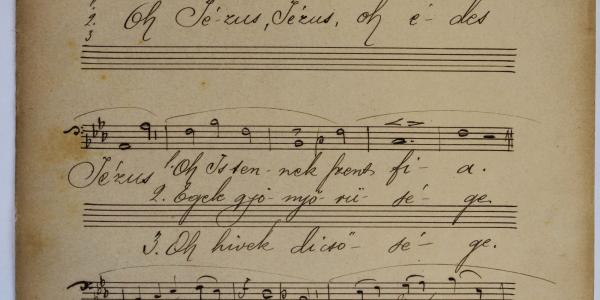 1.
2. Oh Jé-zus, Jézus, oh é- des
3
Jézus 1. Oh Isten- nek szent fi- a.
2. Egek gyö- nyö- rü- sé- ge.
3. Oh hivek dicső- sé- ge.